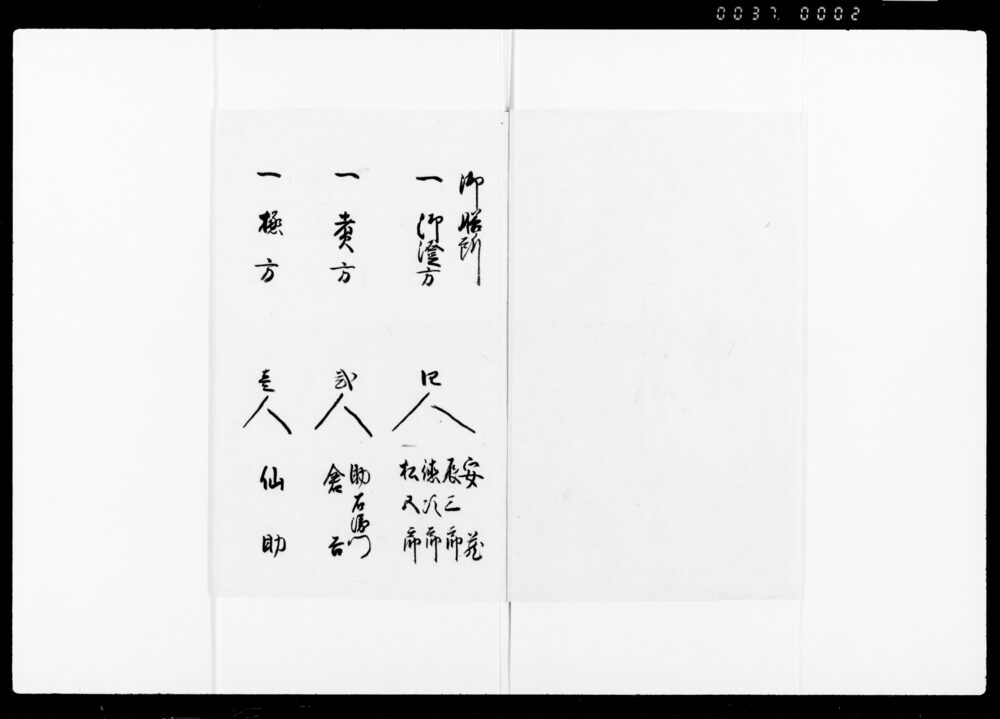 0037. 0002
御膳所
一 御澄方 四人
安蔵
辰三郎
徳次郎
松五郎
一 煮方 弐人
助右衛門
倉吉
一 極方 壱人
仙助